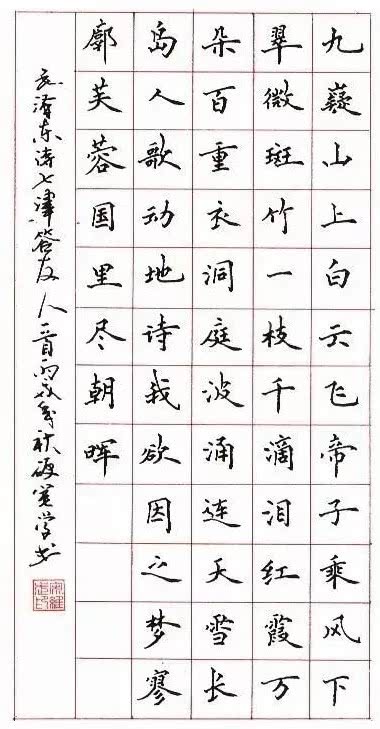 九嶷山上白云飞帝子乘风下
翠微斑竹一枝千滴泪红霞万
朵百重衣洞庭波涌连天雪长
岛人歌动地诗我欲因之梦寥
廓芙蓉国里尽朝晖
毛泽东诗七律答友人一首丙戌年秋学书